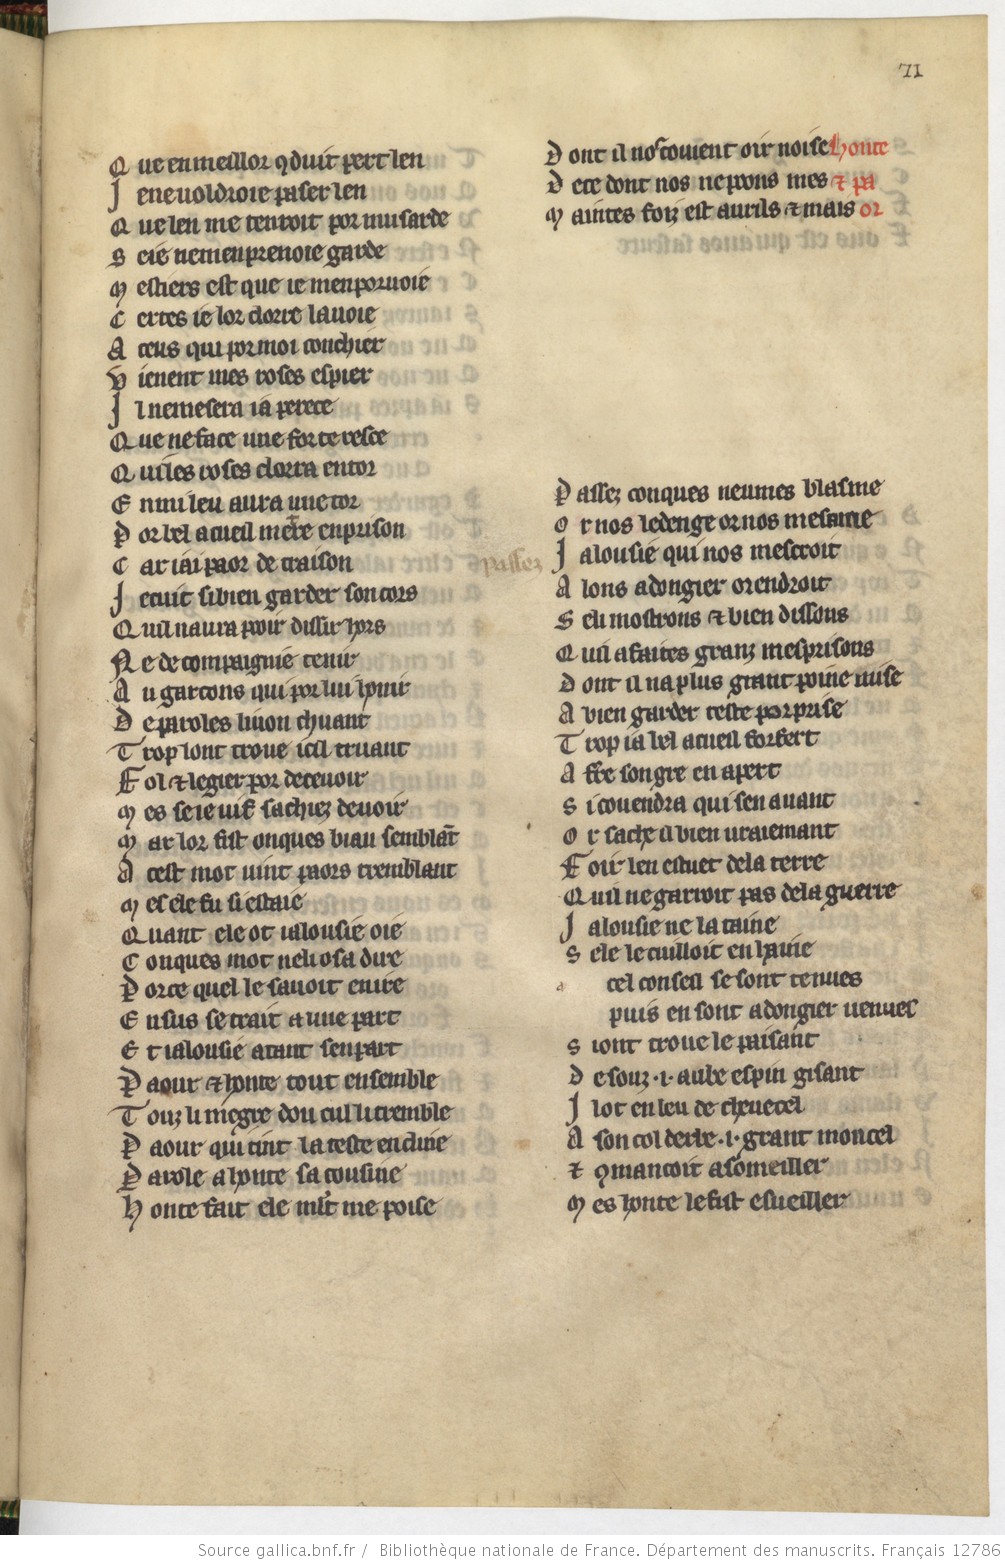 71
Que en meillor 9duit pert len
Je ne voldroie paser len
Que len me tenroit por musarde
Seie ne men prenoie garde
Mestiers est que ie men porvoie
Certes ie lor clorre la voie
A ceus qui por moi conchier
Vienent mes roses espier
Il ne me sera ia perece
Que ne face une forteresce
Qui les roses clorra entor
En mi leu aura une tor
Por bel acueil metre en prison
Car iai paor de traison
Je cuit si bien garder son cors
Quil naura pooir dissir hors
Ne de compaignie tenir
Au garcons qui por lui honir
De paroles li uon chuant
Trop lont trove icil truant
Fol et legier por decevoir
Mes se ie vif sachiez de voir
Mar lor fist onques biau semblāt
A cest mot vint paors tremblant
Mes ele fu si esbaie
Quant ele ot ialousie oie
Conques mot ne li osa dire
Por ce quel le savoit en ire
En sus se trait a une part
Et ialousie atant sen part
Paour et honte tout ensemble
Touz li megre dou cul li tremble
Paour qui tint la teste encline
Parole a honte sa cousine
Honte fait ele mlt me poise
Dont il nos covient oir noise honte
De ce dont nos ne poons mes et pa
Maintes foiz est avrils et mais or
passez
Passez conques neumes blasme
Or nos ledenge or nos mesame
Jalousie qui nos mescroit
Alons a dongier orendroit
Se li mostrons et bien dissons
Quil a faites granz mesprisons
Dont il na plus grant poine mise
A bien garder ceste porprise
Trop ia bel acueil soffert
A fere son gre en apert
Si covendra qui sen avant
Or sache il bien vraiemant
Foir len estuet de la terre
Quil ne garroit pas de la guerre
Jalousie ne la taine
Sele le cuilloit en haine
a cel conseil se sont tenues
puis en sont a dongier venues
Si ont trove le paisant
Desouz .i. aube espin gisant
Il ot en leu de chevecel
A son col derbe .i. grant moncel
et 9mancoit a someillier
Mes honte le fist esueillier
Source gallica.bnf.fr / Bibliothèque nationale de France. Département des manuscrits. Français 12786